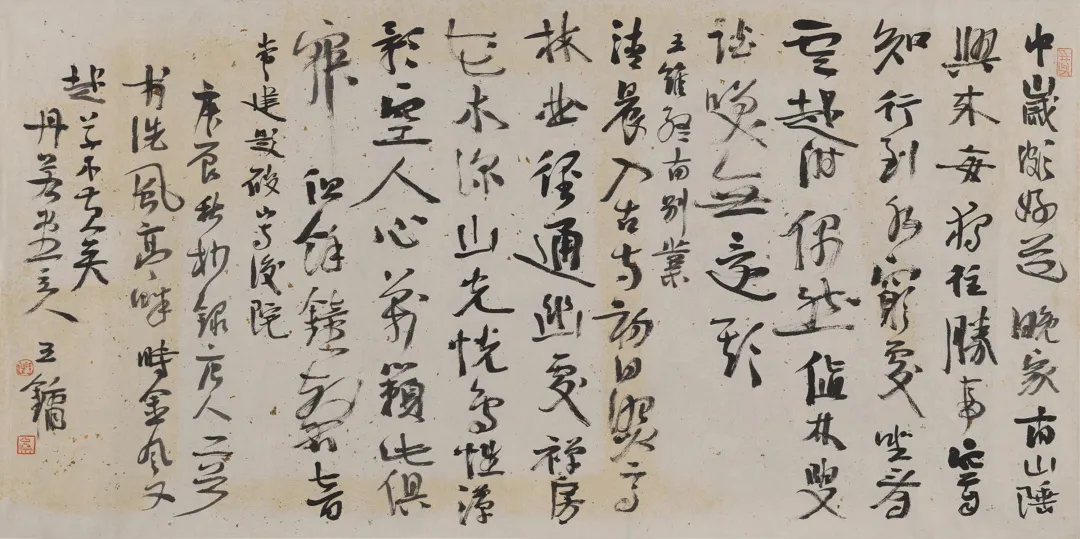 中歲頗好道晚家南山陲
興來每獨往勝事空自
知行到水窮處坐看
雲起時偶然值林叟
談笑無還期
王維終南別業
清晨入古寺初日照高
林曲徑通幽處禪房
花木深山光悅鳥性潭
影空人心萬籟此俱
寂但餘鐘磬音
常建題破山寺後院
庚辰秋杪錄唐人
書洗風亭畔時金風又
起草木黃矣
丹若堂主人
王鏞